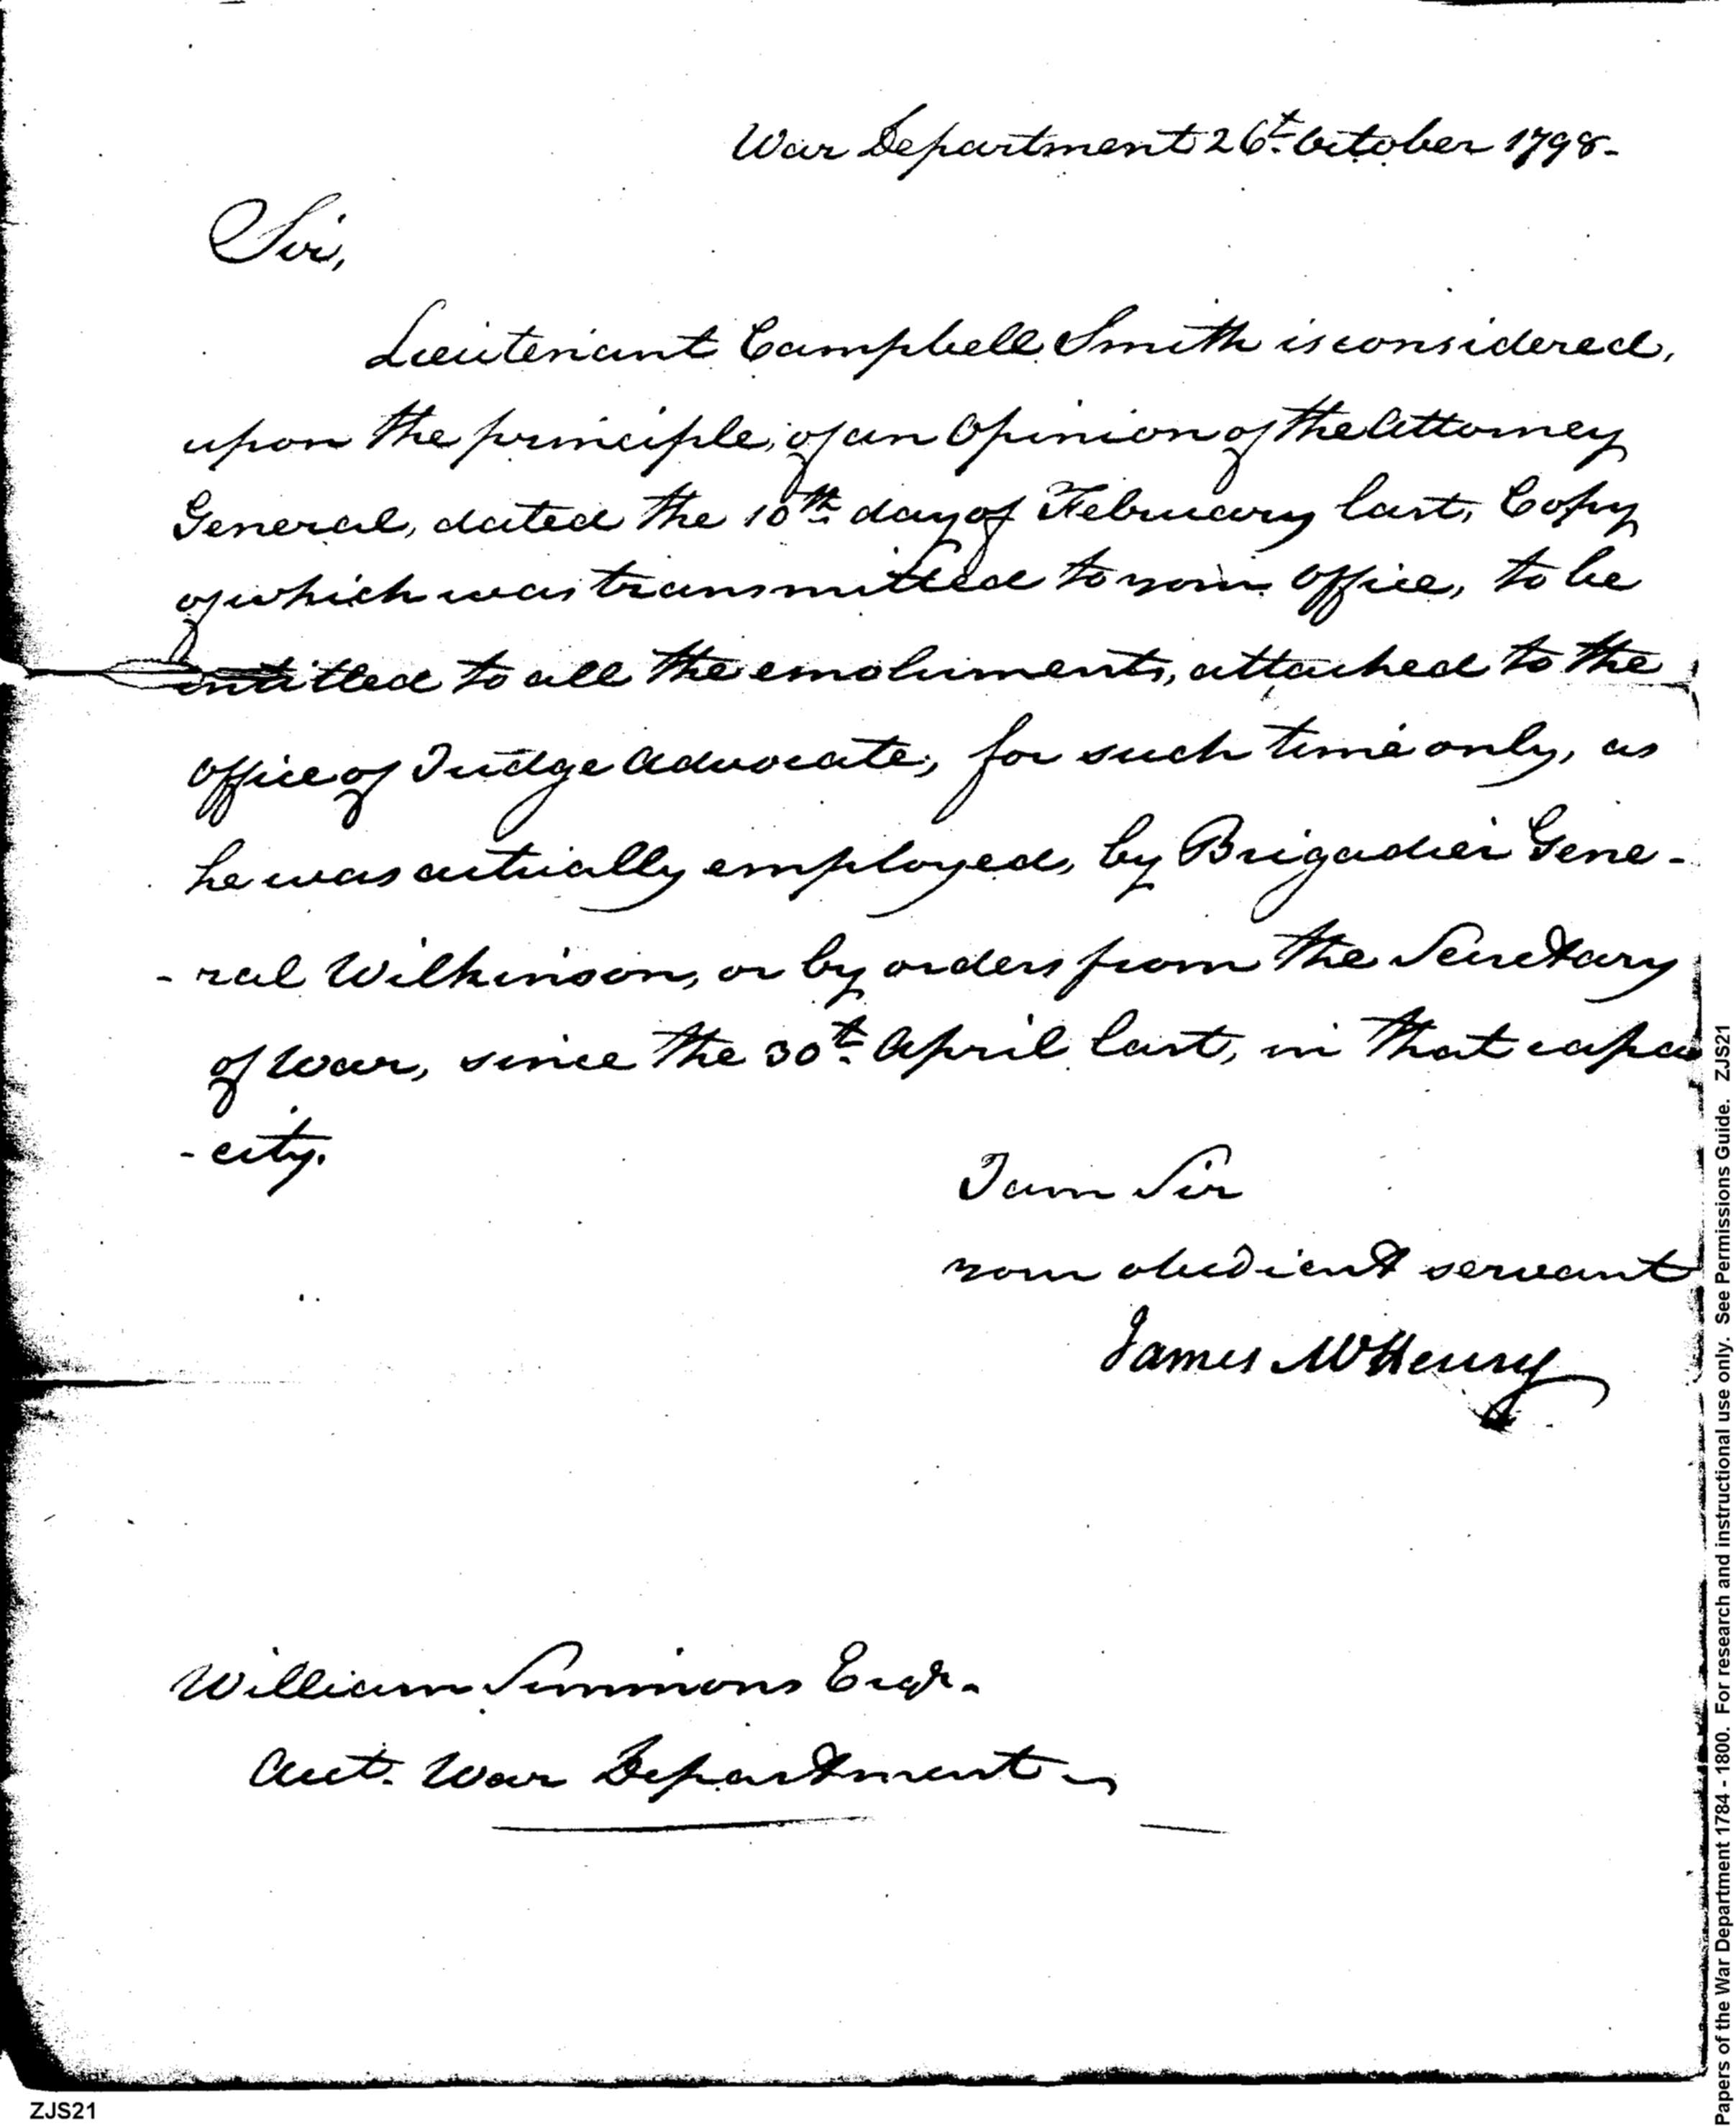 War Department 26t. October 1798-
Sir,
Lieutenant Campbell Smith is considered,
upon the principle, of an Opinion of the Attorney
General, dated the 10th day of February last, Copy
of which was transmitted to your Office, to be
entitled to all the emoluments, attached to the
Office of Judge Advocate, for such time only, as
he was actually employed, by Brigadier Gene-
-ral Wilkinson, or by orders from the Secretary
of War, since the 30t. April last, in that capa
-city.
I am Sir
your obedient servant
James McHenry
William Simmons Esqr.
Acct. War Department
Papers of the War Department 1784 - 1800. For research and instructional use only. See Permissions Guide. ZJS21
ZJS21